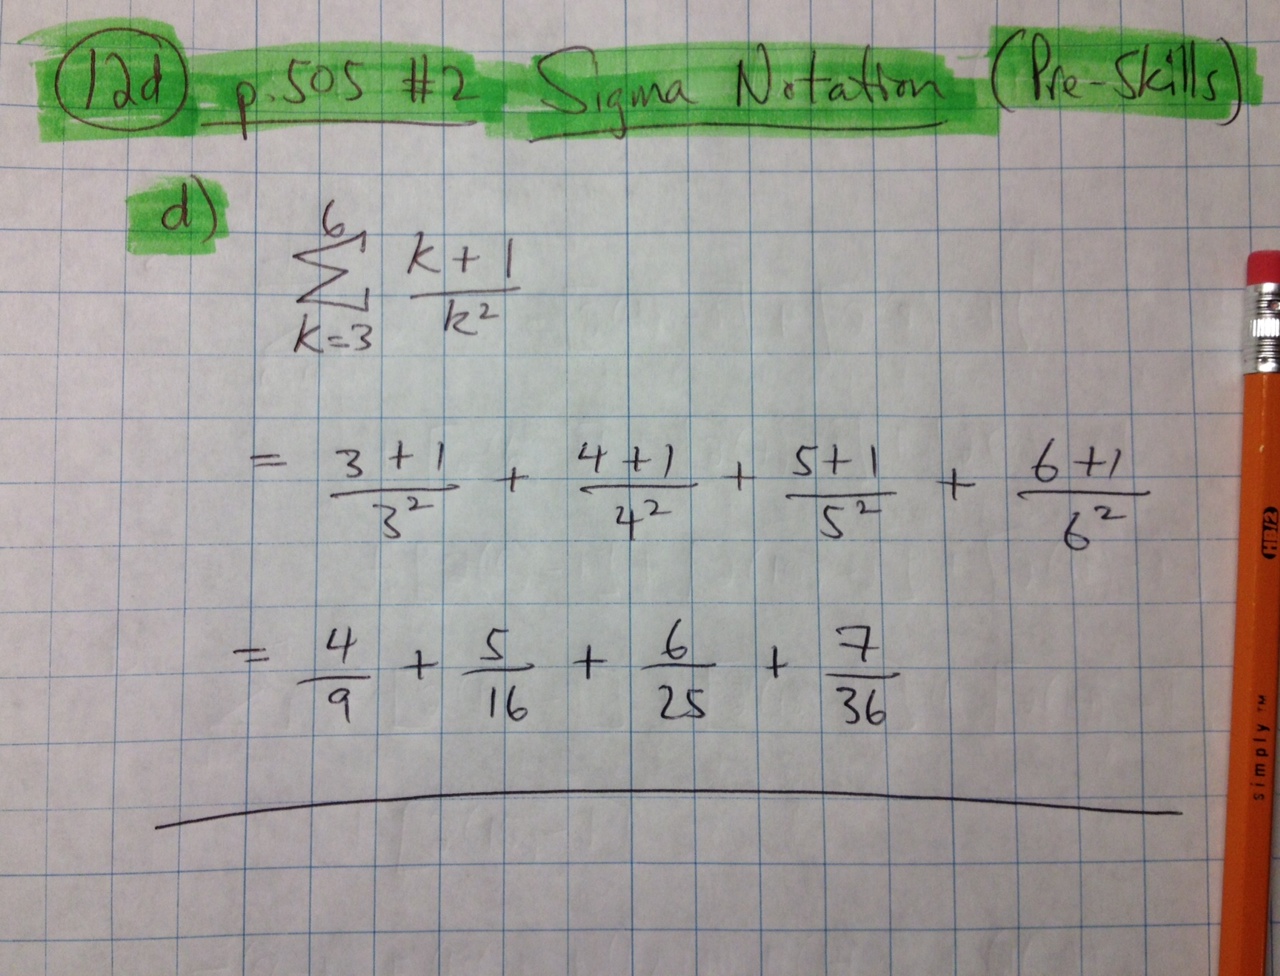 12d p.505 #2 Sigma Notation (Pre-Skills)
d) 6
∑ k+1/k²
k=3
= 3+1/3² + 4+1/4² + 5+1/5² + 6+1/6²
= 4/9 + 5/16 + 6/25 + 7/36
HB/2
simply™